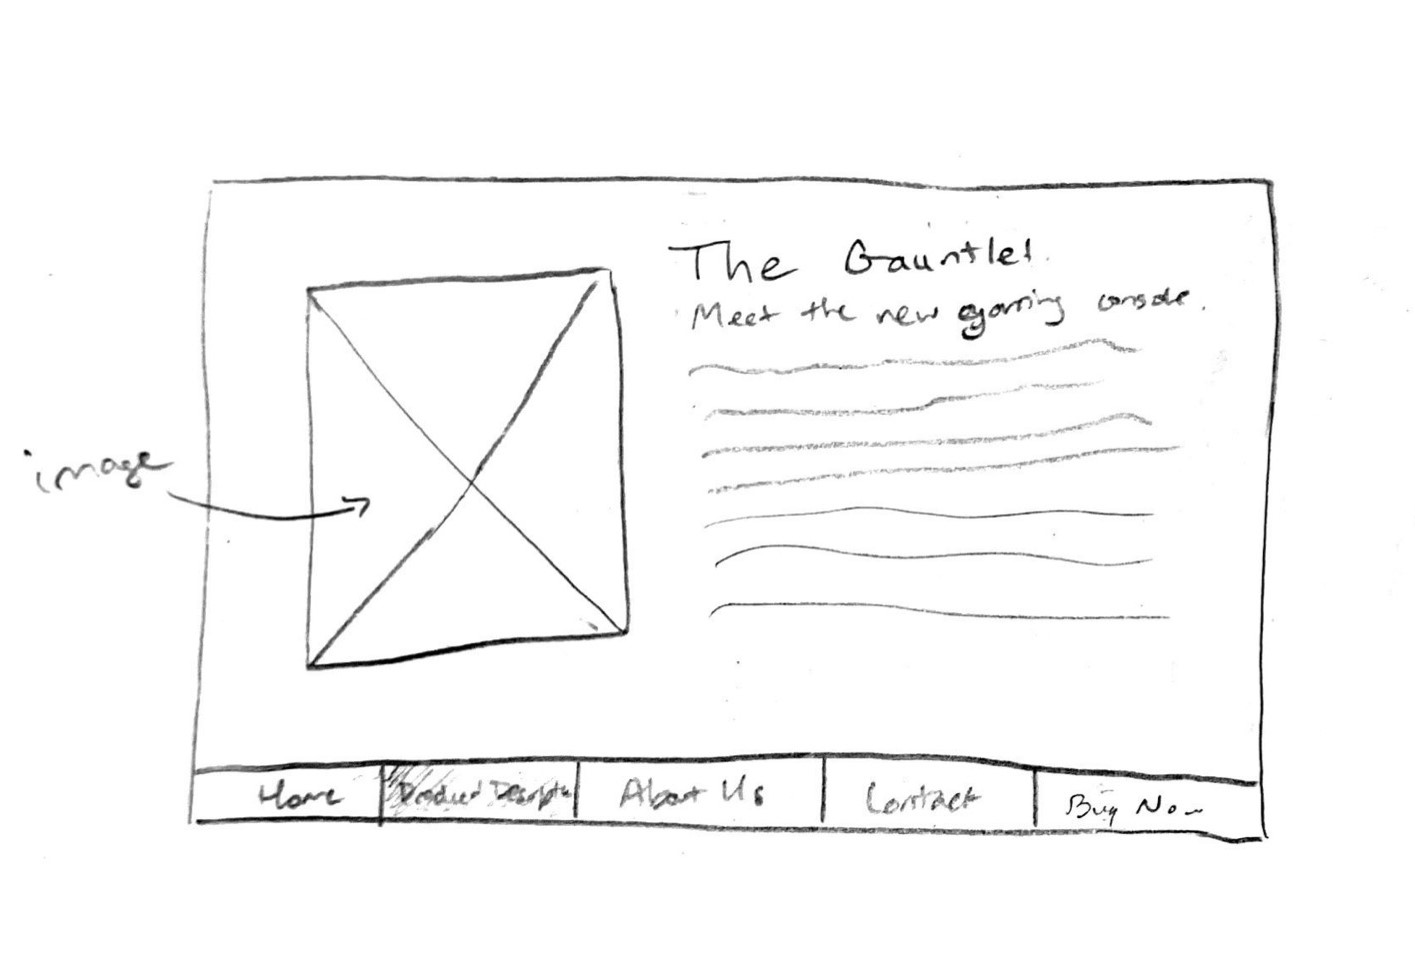 The Gauntlet
Meet the new gaming console.
image
Home
Product Descript
About Us
Contact
Buy Now